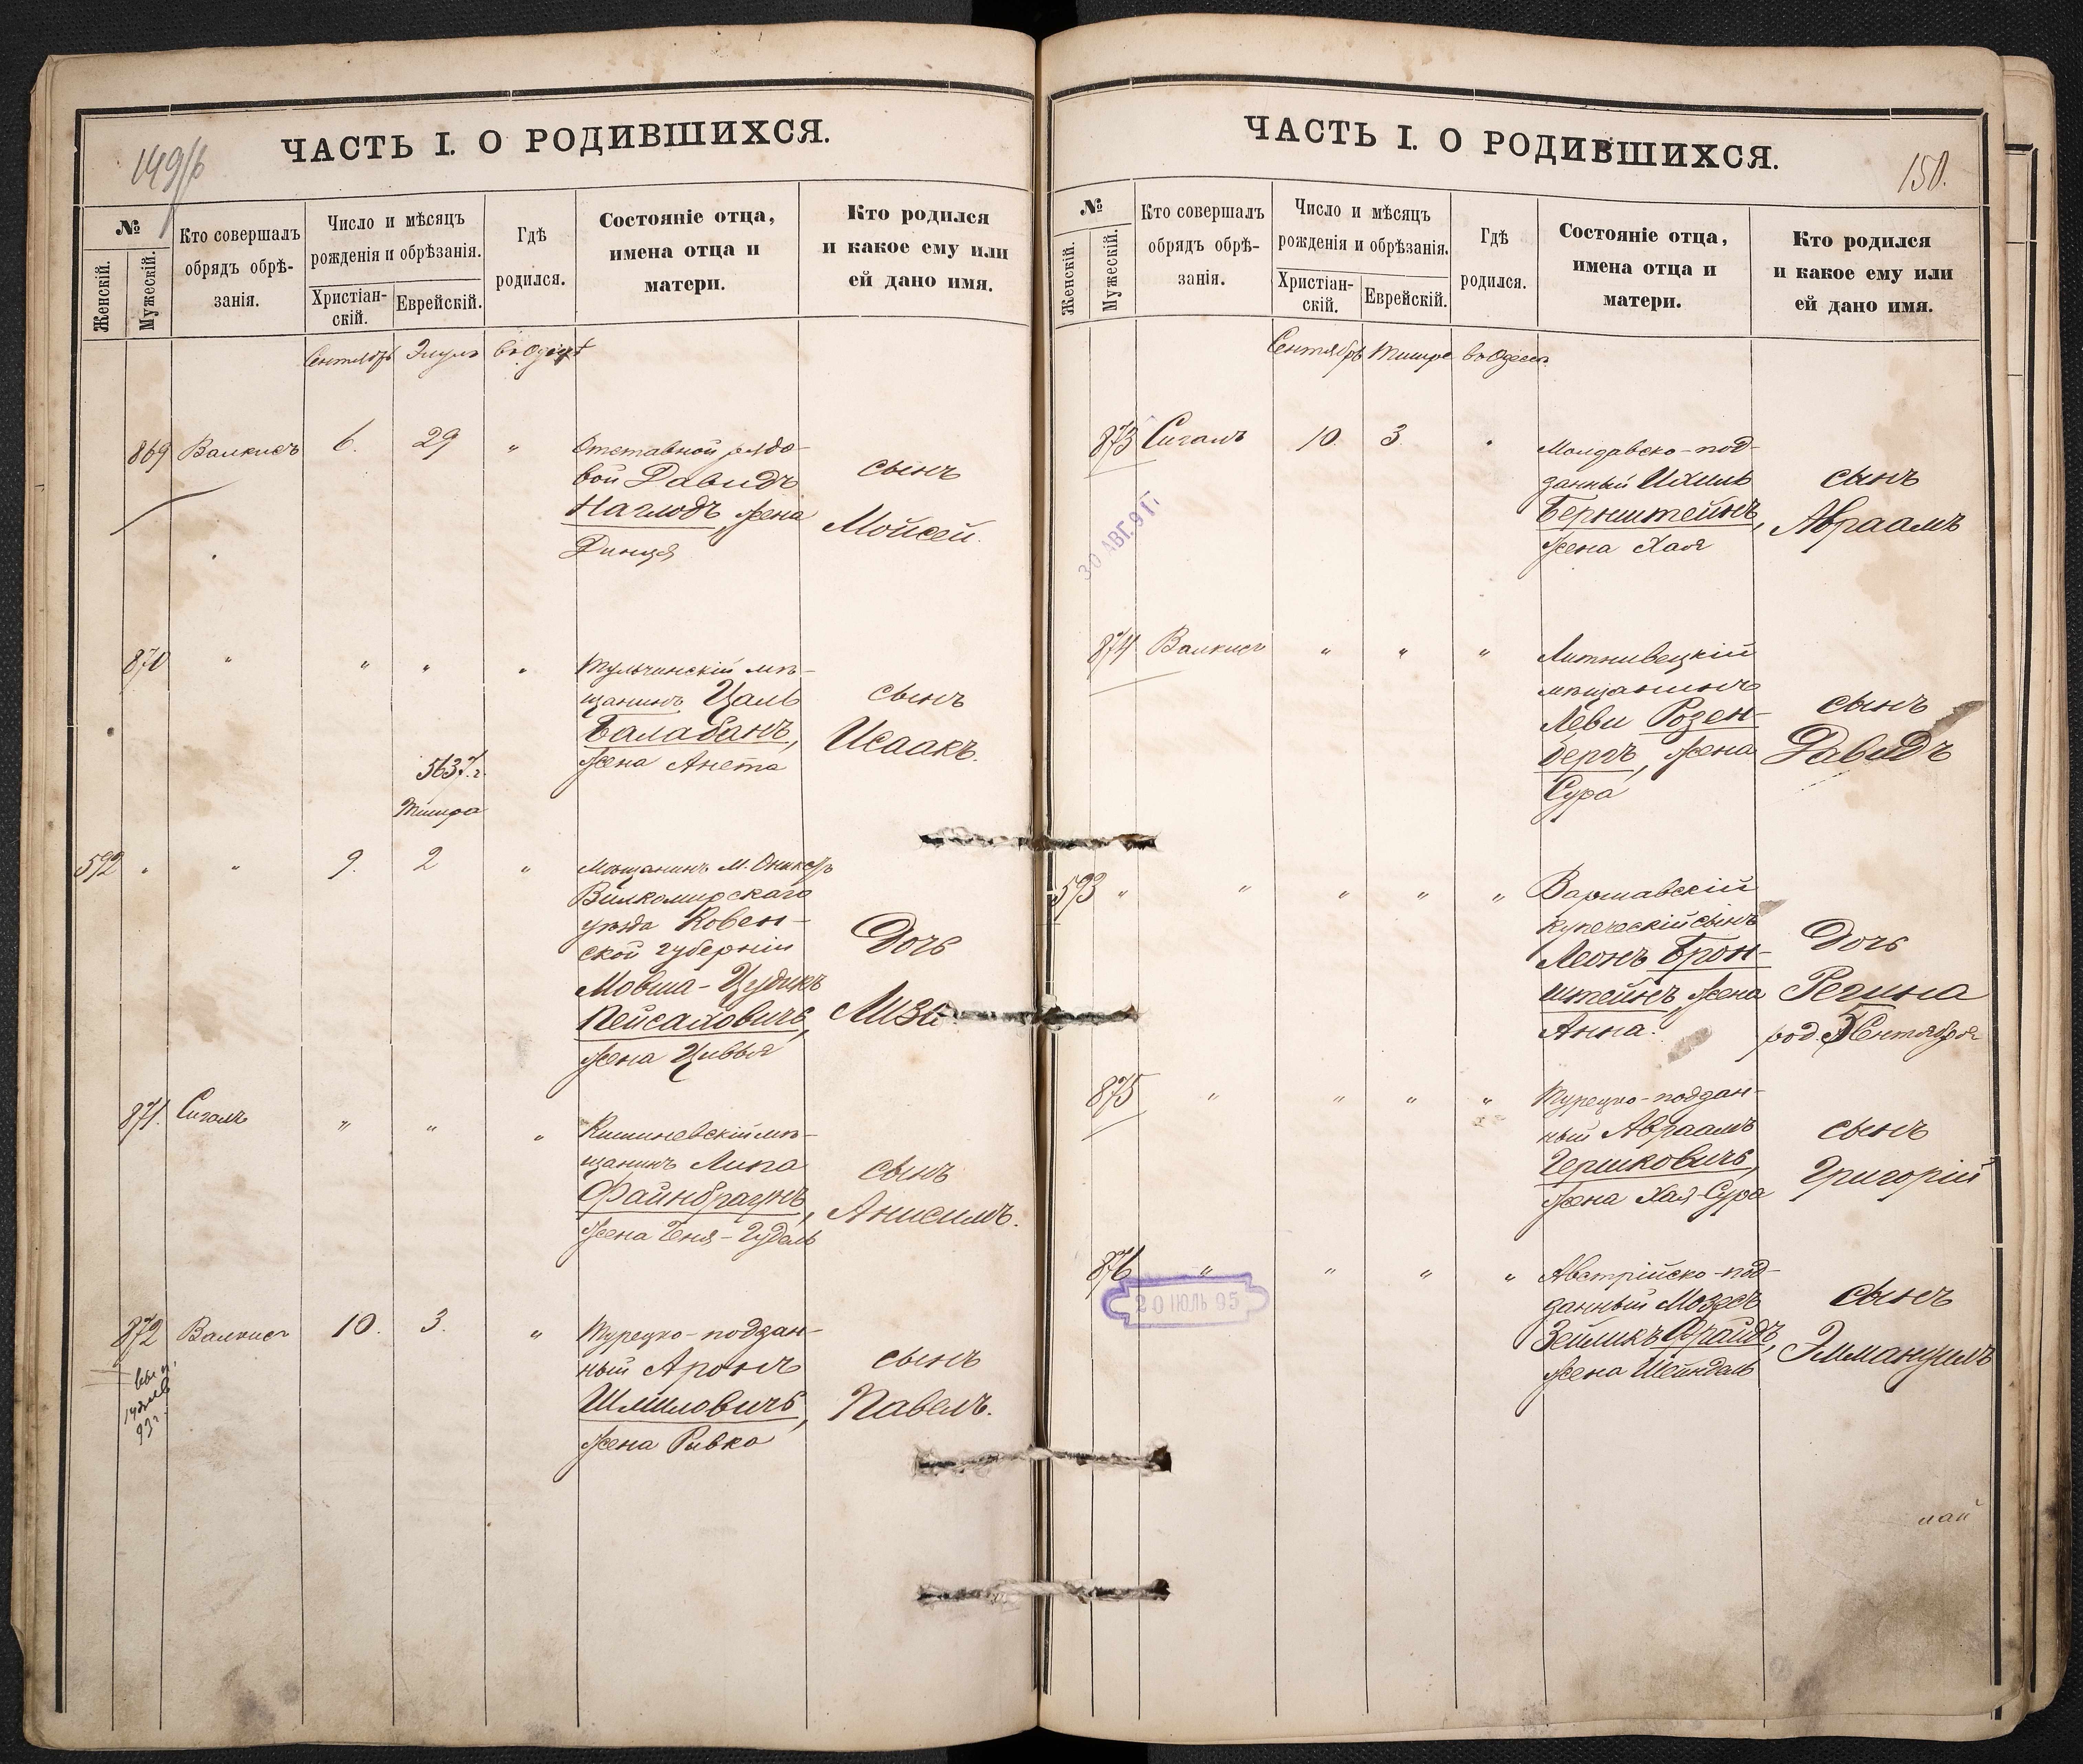 149/б
ЧАСТЬ I. О РОДИВШИХСЯ.
№
Женскій.
Мужескій.
Кто совершалъ
обрядъ обрѣ-
занія.
Число и мѣсяцъ
рожденія и обрѣзанія.
Христіан-
скій.
Еврейскій.
Гдѣ
родился.
Состояніе отца,
имена отца и
матери.
Кто родился
и какое ему или
ей дано имя.
Сентябрь Элулъ въ Одессѣ
869 Валкисъ 6. 29 " Отставной рядо-
вой Давидъ
Наглодъ, жена
Динця
сынъ
Мойсей.
870 " " " " Тульчинскій мѣ-
щанинъ Цаль
Балабанъ,
жена Анета
сынъ
Исаакъ.
5637 г.
Тишра
592 " " 9. 2 " Мѣщанинъ М.
Вилкомирскаго
уѣзда Ковен-
ской губерніи
Мовша-Цудикъ
Пейсаховичъ,
жена Цивья
Дочь
Лиза
871. Сигалъ " " " Кишиневскій мѣ-
щанинъ Липа
Файнбраунъ,
жена Геня-Гудаль
сынъ
Анисимъ.
872 Валкисъ 10. 3. " Турецко-поддан-
ный Аронъ
Шмиловичъ,
жена Ривка
сынъ
Павелъ.
93 г.
ЧАСТЬ I. О РОДИВШИХСЯ.
150.
№
Женскій.
Мужескій.
Кто совершалъ
обрядъ обрѣ-
занія.
Число и мѣсяцъ
рожденія и обрѣзанія.
Христіан-
скій.
Еврейскій.
Гдѣ
родился.
Состояніе отца,
имена отца и
матери.
Кто родился
и какое ему или
ей дано имя.
Сентябрь Тишре въ Одессѣ
873 Сигалъ 10. 3. " Молдавско-под-
данный Ихиль
Бернштейнъ,
жена Хая
сынъ
Авраамъ
30 АВГ. 91
874 Валкисъ " " " Литнивецкій
мѣщанинъ
Леви Розен-
бергъ, жена
Сура
сынъ
Давидъ
593 " " " " " Варшавскій
купеческій сынъ
Леонъ Брон-
штейнъ, жена
Анна.
Дочь
Регина
род. 5 Сентября
875 " " " " Турецко-поддан-
ный Авраамъ
Гершковичъ,
жена Хая-Сура
сынъ
Григорій
876 " " " " Австрійско-под-
данный Мозесъ
Зейликъ Фрайдъ,
жена Шейндаль
сынъ
Эммануилъ
20 ІЮЛЬ 95